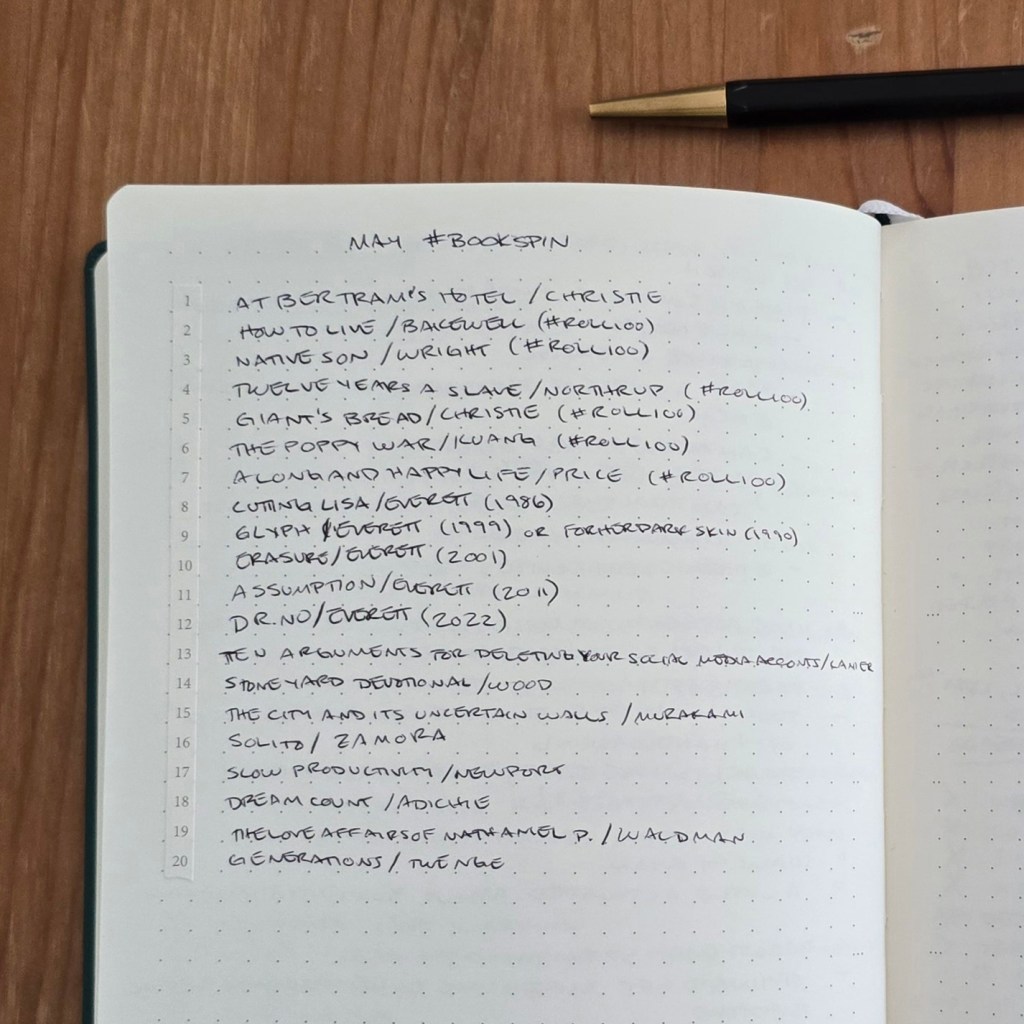 MAY #BOOKSPIN
1 AT BERTRAM'S HOTEL / CHRISTIE
2 HOW TO LIVE / BAKEWELL (#ROLL100)
3 NATIVE SON / WRIGHT (#ROLL100)
4 TWELVE YEARS A SLAVE / NORTHRUP (#ROLL100)
5 GIANT'S BREAD / CHRISTIE (#ROLL100)
6 THE POPPY WAR / KUANG (#ROLL100)
7 A LONG AND HAPPY LIFE / PRICE (#ROLL100)
8 CUTTING LISA / EVERETT (1986)
9 GLYPH / EVERETT (1999) OR FOR HER DARK SKIN (1990)
10 ERASURE / EVERETT (2001)
11 ASSUMPTION / EVERETT (2011)
12 DR. NO / EVERETT (2022)
13 TEN ARGUMENTS FOR DELETING YOUR SOCIAL MEDIA ACCONTS / LANIER
14 STONE YARD DEVOTIONAL / WOOD
15 THE CITY AND ITS UNCERTAIN WALLS / MURAKAMI
16 SOLITO / ZAMORA
17 SLOW PRODUCTIVITY / NEWPORT
18 DREAM COUNT / ADICHIE
19 THE LOVE AFFAIRS OF NATHANIEL P. / WALDMAN
20 GENERATIONS / TWENGE